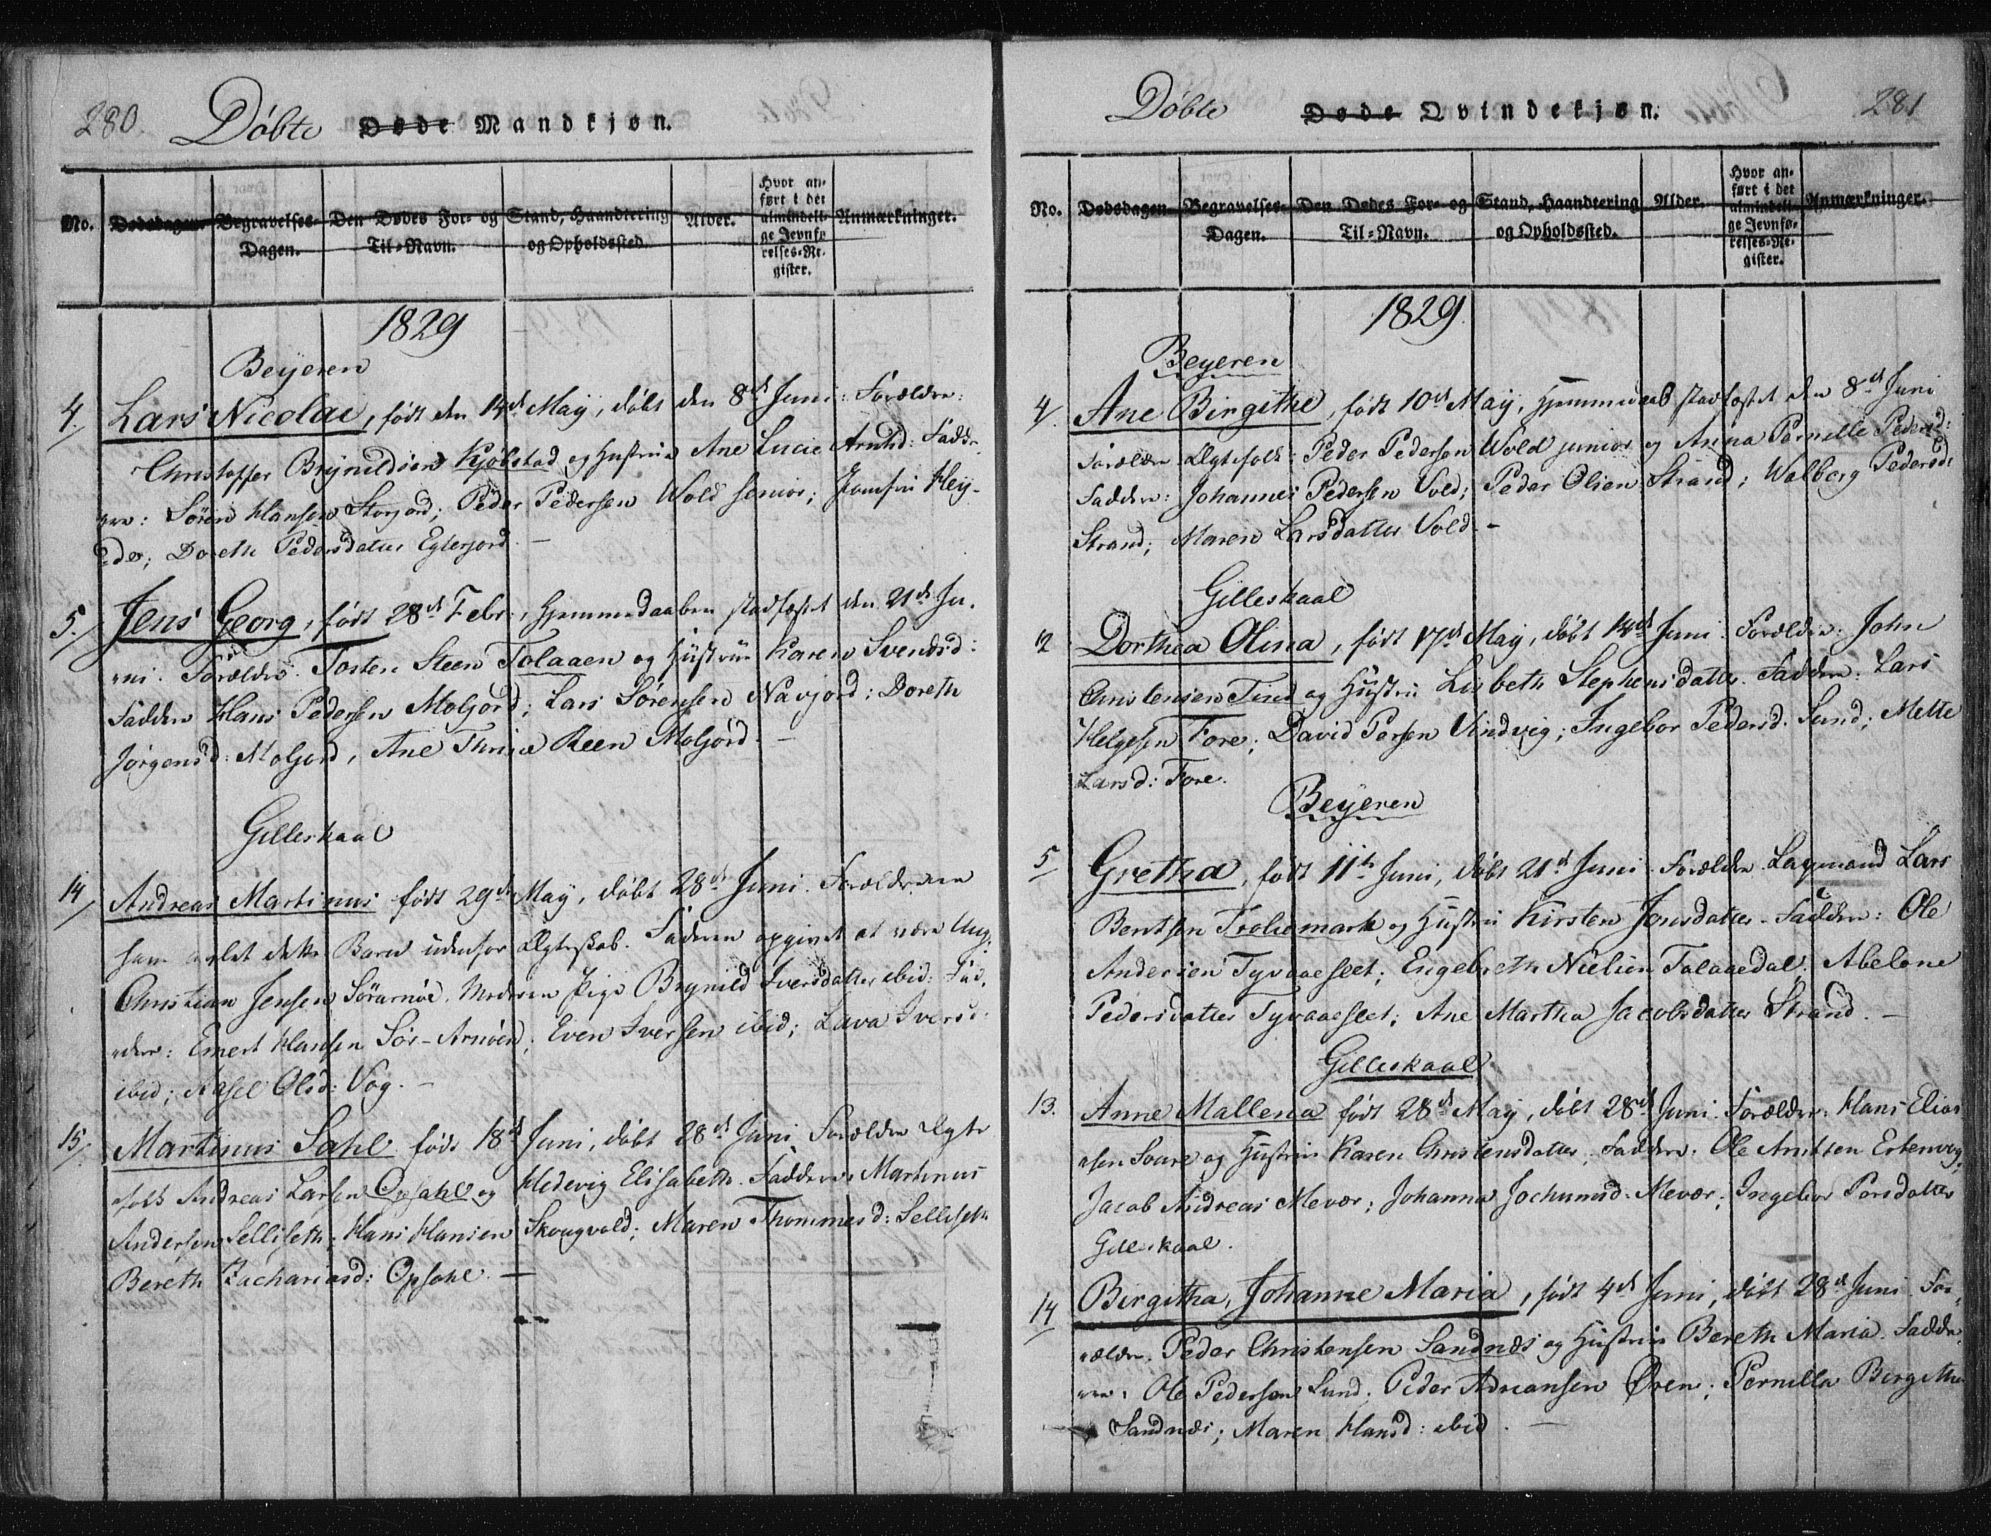 280.
Döbte Døde Mandkjøn.
No. Dødsdagen Begravelses-Dagen. Den Dødes For- og Til-Navn. Stand, Haandtering og Opholdssted. Alder. Hvor anført i det almindelige Jevnførelses-Register. Anmærkninger.
1829
Beyeren
4. Lars Nicolai, födt den 14de May, döbt den 8de Juni. Forældre:
Christoffer Brynildsen Kjöbstad og Hustrue Ane Lucie Arntsd: Fadde-
re: Sören Hansen Storjord; Peder Pedersen Wold senior; Jomfru Hey-
; Doreth Pedersdatter Eglerjord. —
5. Jens Georg, födt 28de Febr., Hjemmedaaben stadfæstet den 21de Ju-
ni. Forældre: Torsten Steen Tolaaen og Hustrue Karen Svendsd:
Faddere Hans Pedersen Moljord; Lars Sörensen Navjord; Doreth
Jörgensd: Moljord, Ane Thrine Reen Moljord. —
Gilleskaal
14 Andreas Martinus födt 29de May, döbt 28de Juni. Forældrene
have avlet dette Barn udenfor Ægteskab. Faderen opgivet at være Ung:
Christian Jensen Sörarnöe. Moderen Pige Brynild Iversdatter ibid: Fad-
dere: Emert Hansen Sör-Arnöen; Even Iversen ibid; Lava Iversd:
ibid; Olsd: Vog. —
15. Martinus Sahl födt 18de Juni, döbt 28de Juni. Forældre Ægte
folk Andreas Larsen Opsahl og Hedevig Elisabeth. Faddere: Martinus
Andersen Selliseth; Hans Hansen Skougvold; Maren Thommesd: Selliseth
Bereth Zachariasd: Opsahl. —
281
Döbte Døde Qvindekjøn.
No. Dødsdagen Begravelses-Dagen. Den Dødes For- og Til-Navn. Stand, Haandtering og Opholdssted. Alder. Hvor anført i det almindelige Jevnførelses-Register. Anmærkninger.
1829.
Beyeren
4. Ane Birgithe, födt 10de May, Hjemmedaab stadfæstet den 8de Juni
Forældre Ægtefolk: Peder Pedersen Wold junior og Anna Pernelle Pedersd:
Faddere: Johannes Pedersen Vold; Peder Olsen Strand; Walberg Pedersd:
Strand; Maren Larsdatter Vold. —
Gilleskaal
12 Dorthea Olina, födt 17de May, döbt 14de Juni. Forældre: John
Christensen Tind og Hustru Lisbeth Stephensdatter. Faddere: Lars
Helgesen Fore; David Persen Vindvig; Ingebor Pedersd. Sund; Mette
Larsd: Fore.
Beyeren
5 Gretha, födt 11te Juni, döbt 21de Juni. Forældre Laymand Lars
Berntsen Troliomark og Hustru Kirsten Jonsdatter. Faddere: Ole
Andersen Tyvaaeslet; Engebreth Nielsen Tolaaedal. Abelone
Pedersdatter Tyvaaeslet; Ane Martha Jacobsdatter Strand. —
Gilleskaal
13. Anne Mallena födt 28de May, döbt 28de Juni. Forældre: Hans Elias
sen Soure og Hustrue Karen Christensdatter. Faddere: Ole Arntsen Ertenvog
Jacob Andreas Mevær; Johanna Jochumsd: Mevær; Ingebor Persdatter
Gilleskaal.
14 Birgitha, Johanne Maria, födt 4de Juni, döbt 28de Juni. For-
ældre. Peder Christensen Sandnæs og Hustrue Bereth Maria. Fadde-
re: Ole Pedersen Sund; Peder Adriansen Øren; Pernilla Birgitha
Sandnæs; Maren Hansd: ibid. —